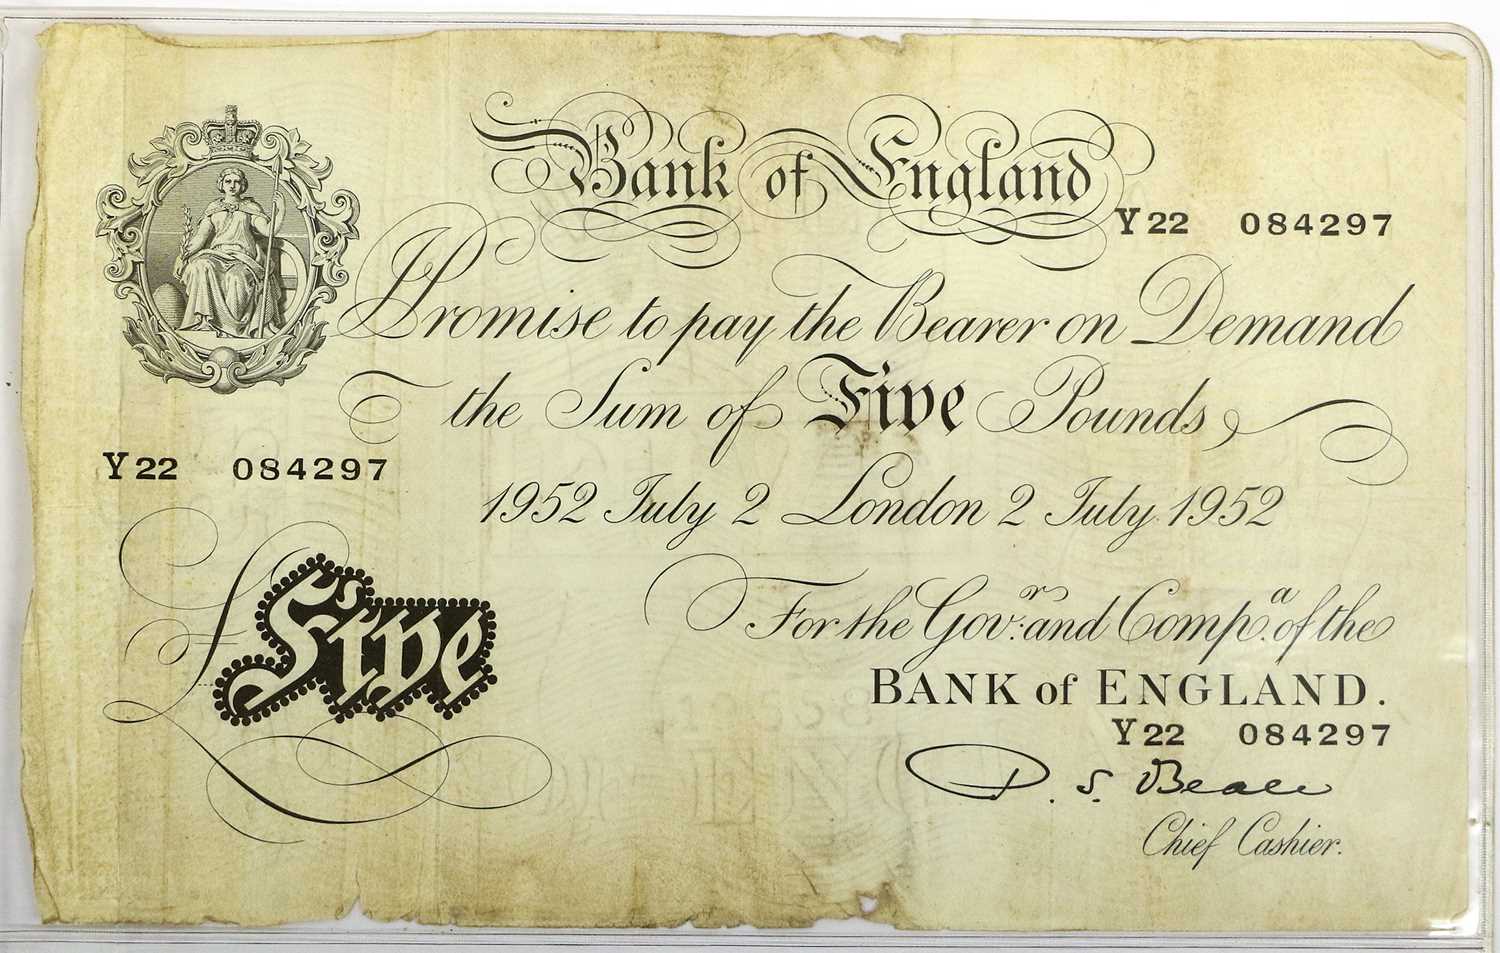 Bank of England
Y22 084297
I Promise to pay the Bearer on Demand
the Sum of Five Pounds
Y22 084297
1952 July 2 London 2 July 1952
For the Govr. and Compa. of the
£Five
BANK of ENGLAND.
Y22 084297
P. S. Beale
Chief Cashier.